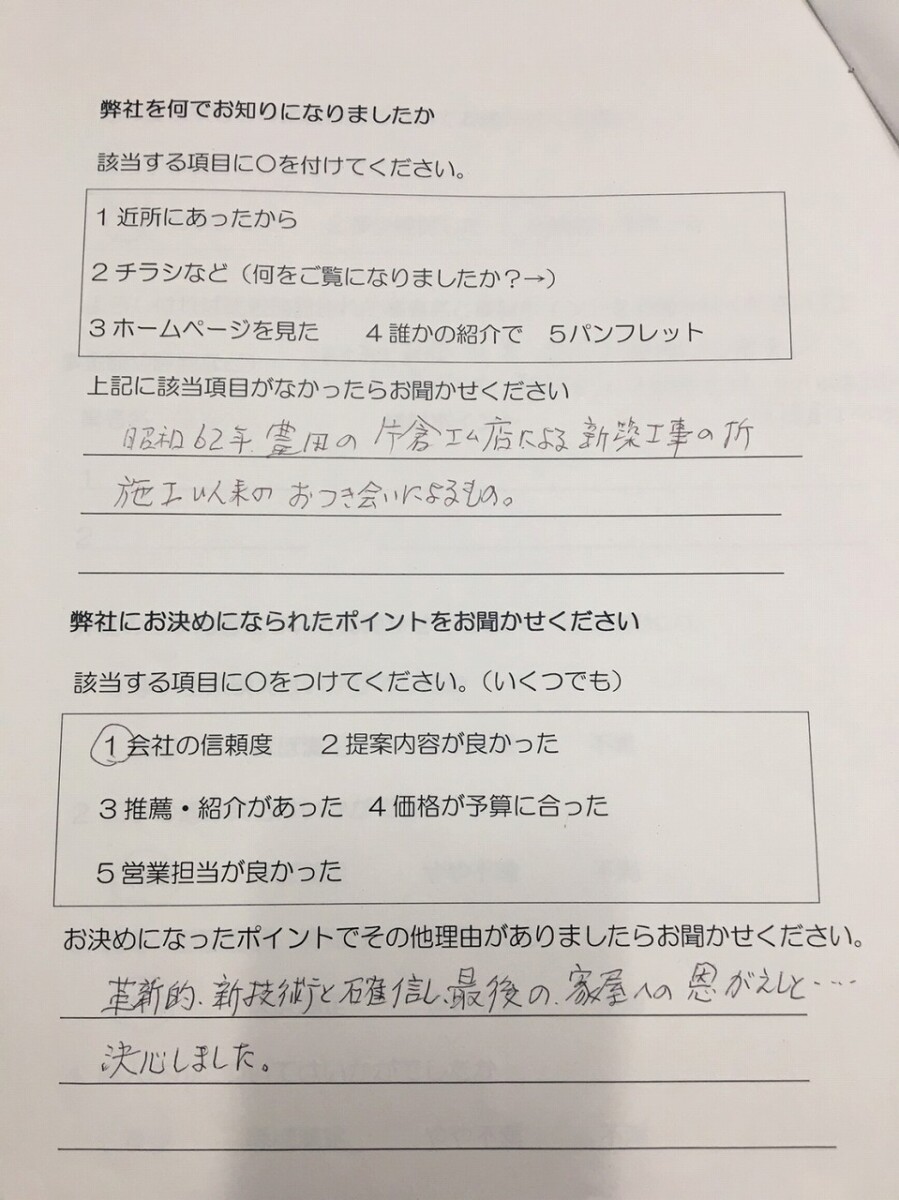 弊社を何でお知りになりましたか
該当する項目に〇を付けてください。
1 近所にあったから
2 チラシなど（何をご覧になりましたか？→）
3 ホームページを見た　4 誰かの紹介で　5パンフレット
上記に該当項目がなかったらお聞かせください
昭和62年.豊田の片倉工店による新築工事の折
施工以来のおつき会いによるもの。
弊社にお決めになられたポイントをお聞かせください
該当する項目に〇をつけてください。（いくつでも）
1 会社の信頼度　2 提案内容が良かった
3 推薦・紹介があった　4 価格が予算に合った
5 営業担当が良かった
お決めになったポイントでその他理由がありましたらお聞かせください。
革新的、新技術と確信し、最後の、家屋への恩がえしと‥‥
決心しました。